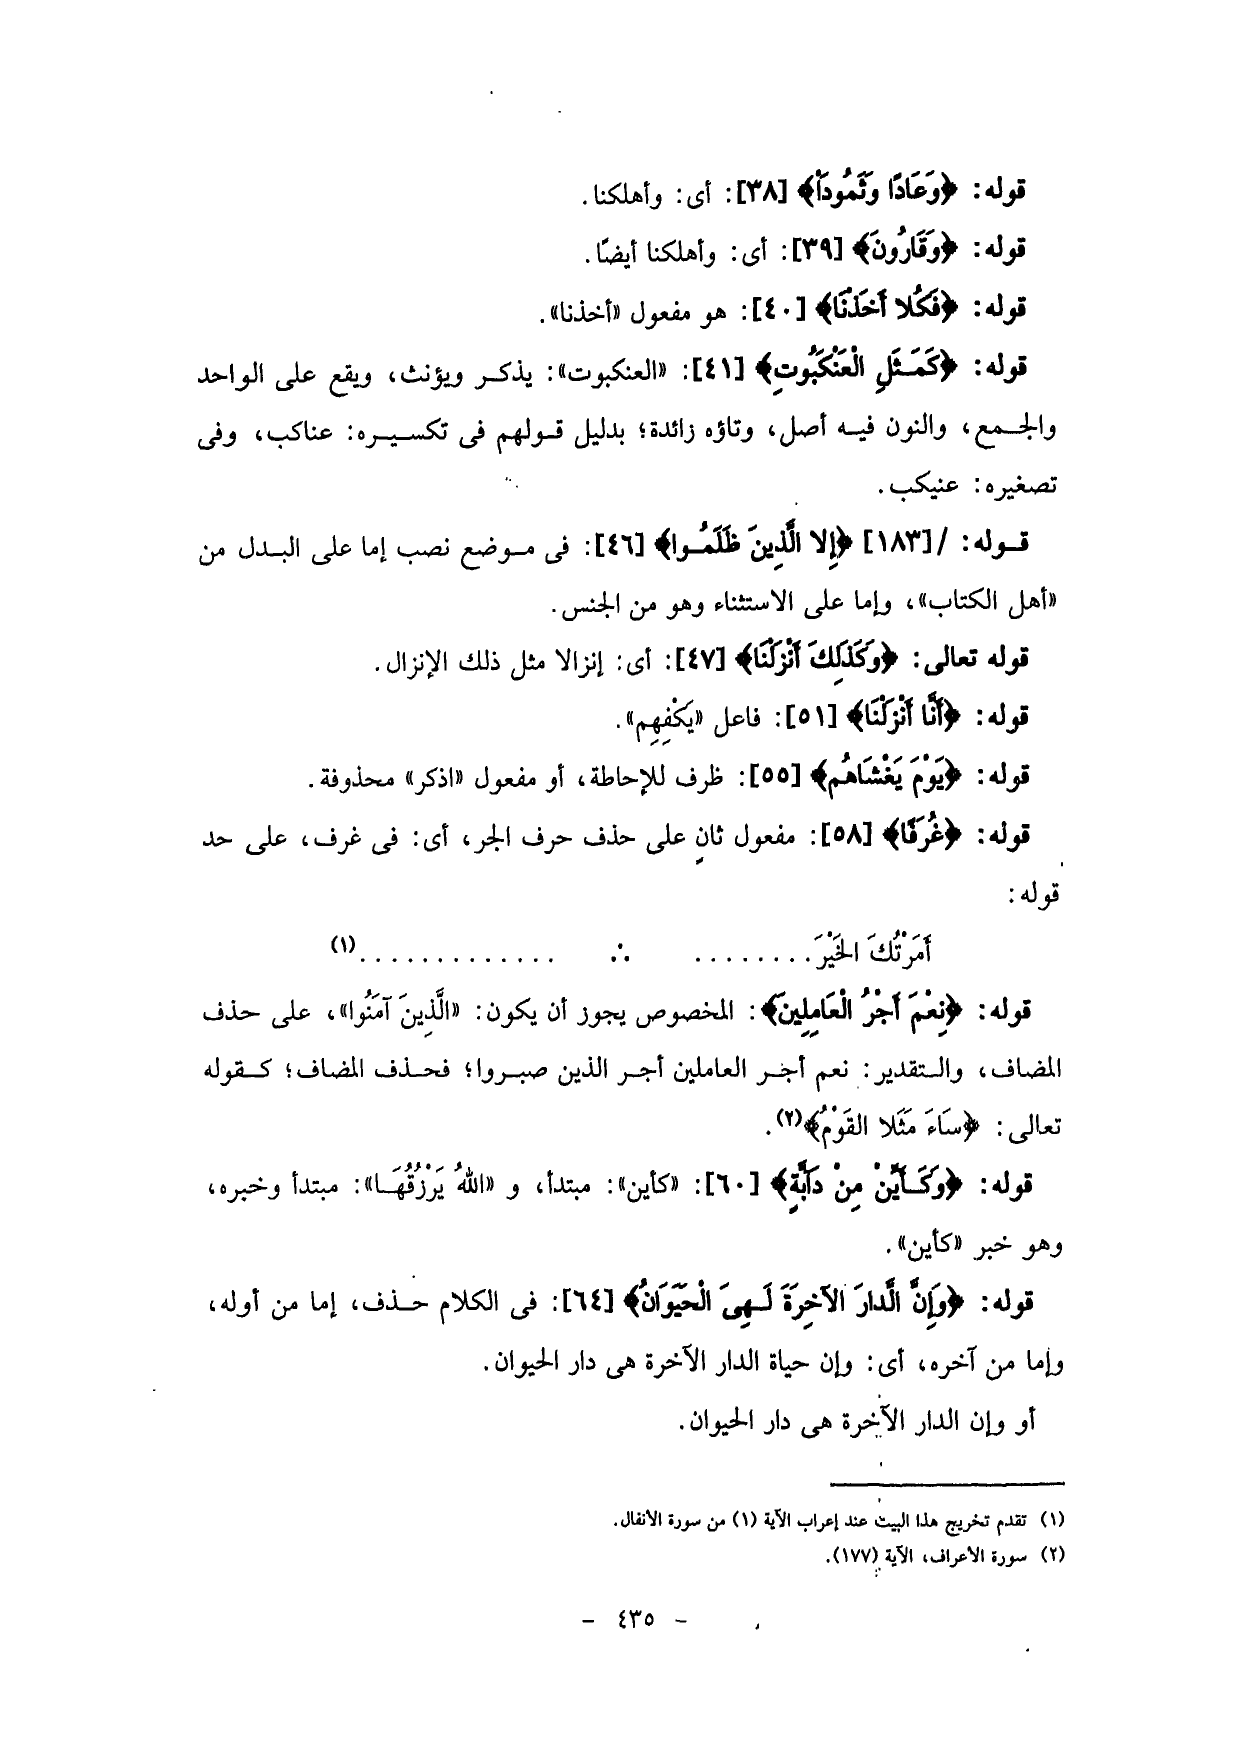 قوله: ﴿وَعَادًا وَثَمُودَاْ﴾ [٣٨]: أى: وأهلكنا.
قوله: ﴿وَقَارُونَ﴾ [٣٩]: أى: وأهلكنا أيضًا.
قوله: ﴿فَكُلا أَخَذْنَا﴾ [٤٠]: هو مفعول «أخذنا».
قوله: ﴿كَمَثَلِ الْعَنْكَبُوتِ﴾ [٤١]: «العنكبوت»: يذكر ويؤنث، ويقع على الواحد
والجمع، والنون فيه أصل، وتاؤه زائدة؛ بدليل قولهم فى تكسيره: عناكب، وفى
تصغيره: عنيكب.
قوله: /[١٨٣] ﴿إِلا الَّذِينَ ظَلَمُوا﴾ [٤٦]: فى موضع نصب إما على البدل من
«أهل الكتاب»، وإما على الاستثناء وهو من الجنس.
قوله تعالى: ﴿وَكَذَلِكَ أَنْزَلْنَا﴾ [٤٧]: أى: إنزالا مثل ذلك الإنزال.
قوله: ﴿أَنَّا أَنْزَلْنَا﴾ [٥١]: فاعل «يَكْفِهِم».
قوله: ﴿يَوْمَ يَغْشَاهُم﴾ [٥٥]: ظرف للإحاطة، أو مفعول «اذكر» محذوفة.
قوله: ﴿غُرَفًا﴾ [٥٨]: مفعول ثانٍ على حذف حرف الجر، أى: فى غرف، على حد
قوله:
أَمَرْتُكَ الخَيْرَ........ ∴ .............(١)
قوله: ﴿نِعْمَ أَجْرُ الْعَامِلِينَ﴾: المخصوص يجوز أن يكون: «الَّذِينَ آمَنُوا»، على حذف
المضاف، والتقدير: نعم أجر العاملين أجر الذين صبروا؛ فحذف المضاف؛ كقوله
تعالى: ﴿سَاءَ مَثَلا القَوْمُ﴾(٢).
قوله: ﴿وَكَأَيِّنْ مِنْ دَابَّةٍ﴾ [٦٠]: «كأين»: مبتدأ، و «اللهُ يَرْزُقُهَا»: مبتدأ وخبره،
وهو خبر «كأين».
قوله: ﴿وَإِنَّ الَّدارَ الآخِرَةَ لَهِىَ الْحَيَوَانُ﴾ [٦٤]: فى الكلام حذف، إما من أوله،
وإما من آخره، أى: وإن حياة الدار الآخرة هى دار الحيوان.
أو وإن الدار الآخرة هى دار الحيوان.
(١) تقدم تخريج هذا البيت عند إعراب الآية (١) من سورة الأنفال.
(٢) سورة الأعراف، الآية (١٧٧).
- ٤٣٥ -